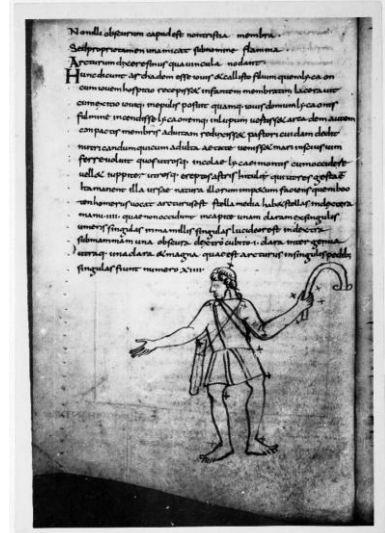 Nonilli obscurum capud est nontristia membra .
Sed proprio tamen una micat subnomine flamma .
Arcturum dixere sinus qua uincula nodant .
Hunc dicunt archadem esse iouis & callisto filium quem lycaon
cum iouem hospitio recepiss& infantem membratim lacerauit
cum extio ioui epulis posuit quamq; iouis domum lycaonis
fulmine incendiss& lycaonemq; inlupum uertiss& arcadem autem
conpactis membris aduitam reduxiss& pastori cuidam dedit
nutriendum quicum adulta aetate ueniss& mari inscius uim
ferre uoluit quos utrosq; incolae lycaei montis cum occidere
uell& iuppiter utrosq; ereptos astris intulit
manent illa ursae natura illorum
homerus uocat arcturus est stella media hab& stellas indextera
manu IIII quae nonoccidunt incapite unam claram exsingulis
umeris singulas inmamillis singulas lucidior est indextra
submammam una obscura dextro cubito I clara inter genua
utraq; una clara & magna quae est arcturus insingulis pedib;
singulas fiunt numero XIIII